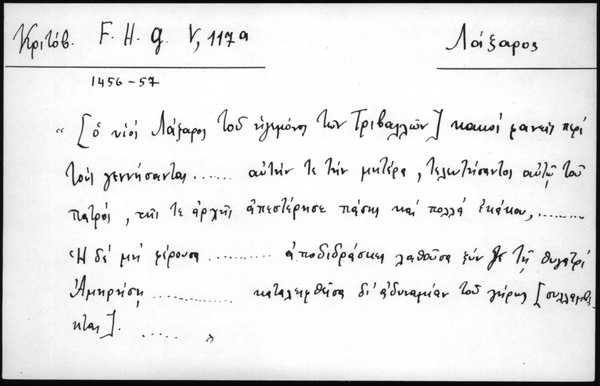 Κριτόβ. F. H. g. V, 117a
Λάζαρος
1456-57
" [ὁ υἱός Λάζαρος τοῦ ἡγεμόνος τῶν Τριβαλλῶν] κακός φανείς περί
τούς γεννήσαντας ...... αὐτήν τε τήν μητέρα, τελευτήσαντος αὐτῇ τοῦ
πατρός, τῆς τε ἀρχῆς ἀπεστέρησε πάσης καί πολλά ἐκάκου, ........
Ἡ δέ μή φέρουσα .......... ἀποδιδράσκει λαθοῦσα ξύν γε τῇ θυγατρί
Ἀμηρήση ............ καταλειφθεῖσα δι' ἀδυναμίαν τοῦ γήρως [συλλαμβάνεται].
..... "